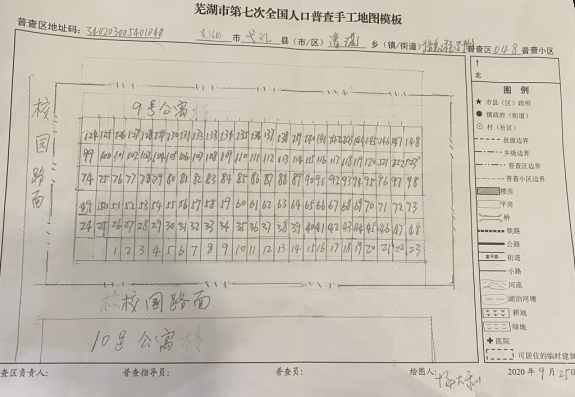 芜湖市第七次全国人口普查手工地图模板
普查区地址码：340203005401048 芜湖 市 弋江 县（市/区） 乡（镇/街道） 普查区 048 普查小区
北
图 例
市县（区）政府
镇政府（街道）
村（社区）
县级边界
乡级边界
普查区边界
普查小区边界
楼房
平房
桥
铁路
公路
街道
小路
河流
湖泊河塘
耕地
绿地
医院
可居住的临时建筑
校园路面
9号公寓楼
124 125 126 127 128 129 130 131 132 133 134 135 136 137 138 139 140 141 142 143 144 145 146 147 148
99 100 101 102 103 104 105 106 107 108 109 110 111 112 113 114 115 116 117 118 119 120 121 122 123
74 75 76 77 78 79 80 81 82 83 84 85 86 87 88 89 90 91 92 93 94 95 96 97 98
49 50 51 52 53 54 55 56 57 58 59 60 61 62 63 64 65 66 67 68 69 70 71 72 73
24 25 26 27 28 29 30 31 32 33 34 35 36 37 38 39 40 41 42 43 44 45 46 47 48
1 2 3 4 5 6 7 8 9 10 11 12 13 14 15 16 17 18 19 20 21 22 23
校校园路面
10号公寓楼
查区负责人： 普查指导员： 普查员： 绘图人： 2020年9月25日